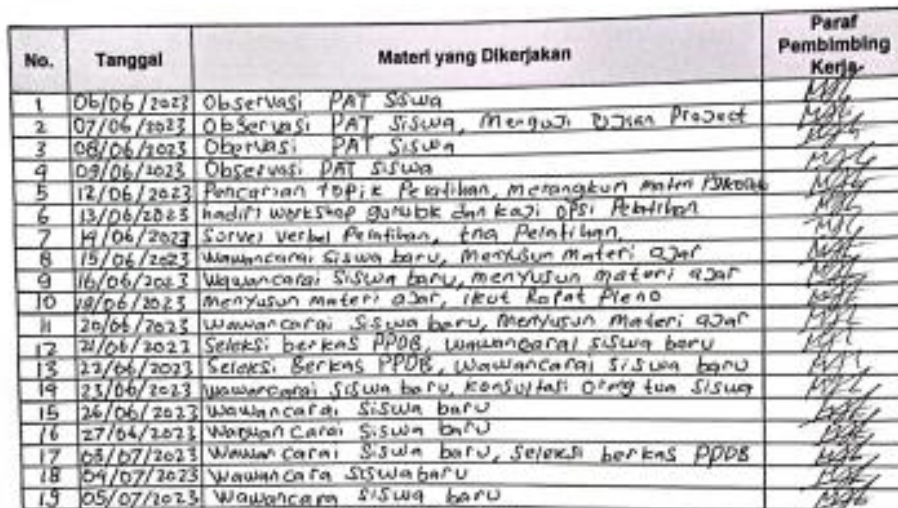 No. Tanggal Materi yang Dikerjakan Paraf Pembimbing Kerja
1 06/06/2023 Observasi PAT Siswa
2 07/06/2023 Observasi PAT Siswa, Menguji Ujian Project
3 08/06/2023 Obervasi PAT Siswa
4 09/06/2023 Observasi PAT Siswa
5 12/06/2023 Pencarian topik Pelatihan, merangkum materi
6 13/06/2023 hadiri workshop guru bk dan kaji opsi Pelatihan
7 14/06/2023 Survei verbal Pelatihan, tna Pelatihan
8 15/06/2023 Wawancarai Siswa baru, Menyusun materi ajar
9 16/06/2023 Wawancarai Siswa baru, menyusun materi ajar
10 19/06/2023 Menyusun materi ajar, ikut Rapat Pleno
11 20/06/2023 Wawancarai Siswa baru, Menyusun Materi ajar
12 21/06/2023 Seleksi berkas PPDB, wawancarai siswa baru
13 22/06/2023 Seleksi Berkas PPDB, wawancarai siswa baru
14 23/06/2023 wawancarai siswa baru, konsultasi orang tua siswa
15 26/06/2023 Wawancarai Siswa baru
16 27/06/2023 Wawancarai Siswa baru
17 03/07/2023 Wawancarai Siswa baru, Seleksi berkas PPDB
18 04/07/2023 Wawancara Siswa baru
19 05/07/2023 Wawancara Siswa baru